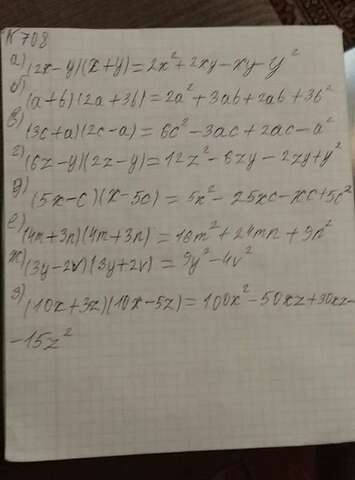 № 708
а) (2x-y)(x+y)=2x²+2xy-xy-y²
б) (a+b)(2a+3b)=2a²+3ab+2ab+3b²
в) (3c+a)(2c-a)=6c²-3ac+2ac-a²
г) (6z-y)(2z-y)=12z²-6zy-2zy+y²
д) (5x-c)(x-5c)=5x²-25xc-xc+5c²
е) (4m+3n)(4m+3n)=16m²+24mn+9n²
ж) (3y-2v)(3y+2v)=9y²-4v²
з) (10x+3z)(10x-5z)=100x²-50xz+30xz-
-15z²